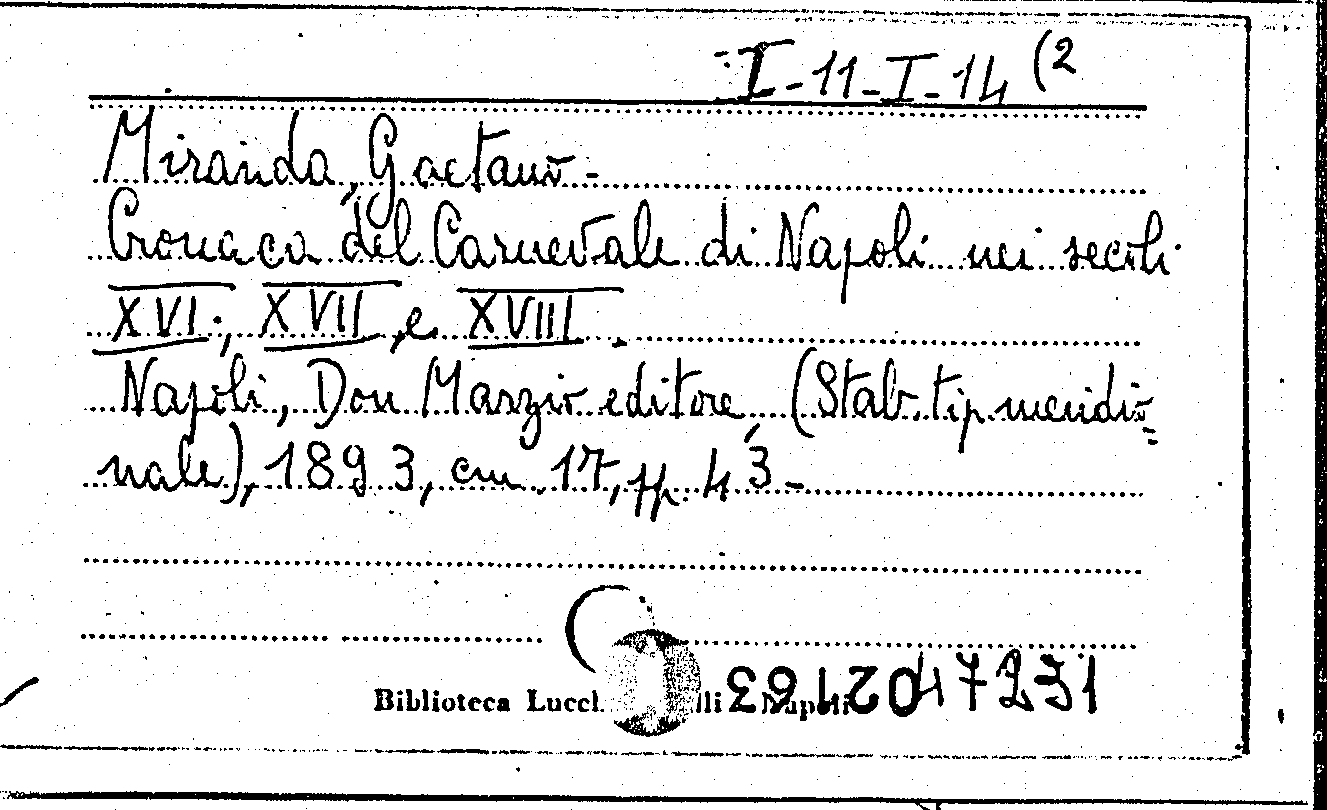 I-11-I-14 (2
Miranda, Gaetano -
Cronaca del Carnevale di Napoli nei secoli
XVI, XVII, e XVIII.
Napoli, Don Marzio editore, (Stab. tip. meridio=
nale), 1893, cm. 17, pp. 43 -
Biblioteca Napoli
47231